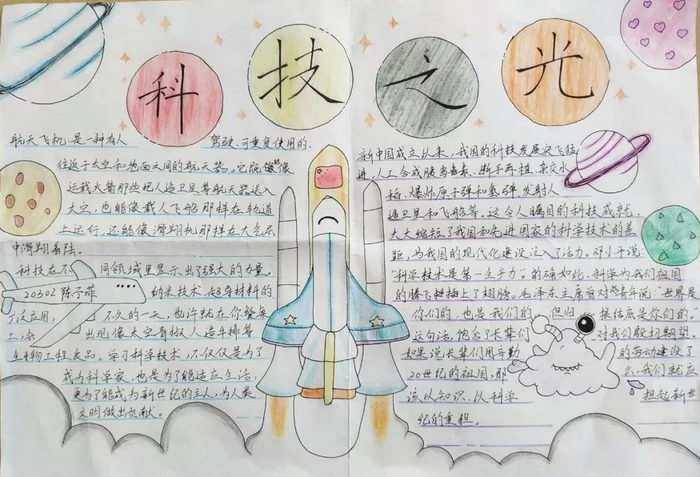 科技之光
航天飞机,是一种有人驾驶、可重复使用的、
往返于太空和地面之间的航天器。它既能像
运载火箭那样把人造卫星等航天器送入
太空,也能像载人飞船那样在轨道
上运行,还能像滑翔机那样在大气层
中滑翔着陆。
科技在不同领域里显示出了强大的力量。
20302 陈子菲
纳米技术、超导材料的
广泛应用,不久的一天,也许就在你餐桌
上,会出现像太空育秧、人造牛排等
生物工程食品。学习科学技术,不仅仅是为了
成为科学家,也是为了能适应生活,
更为了能成为新世纪的主人,为人类
文明做出贡献。
新中国成立以来,我国的科技发展突飞猛
进,人工合成胰岛素、断手再植、杂交水
稻、爆炸原子弹和氢弹、发射人
造卫星和飞船等。这令人瞩目的科技成就,
大大缩短了我国和先进国家的科学技术的差
距,为我国的现代化建设注入了活力。邓小平说
"科学技术是第一生产力"的确如此,科学为我们祖国
的腾飞插上了翅膀。毛泽东主席曾对青年说:"世界是
你们的,也是我们的,但归根结底是你们的"
这句话,饱含了长辈们对我们殷切期望
如果说长辈们用辛勤的劳动建设了
20世纪的祖国,那么,我们就应
该以知识、从科学担起新世
纪的重担。